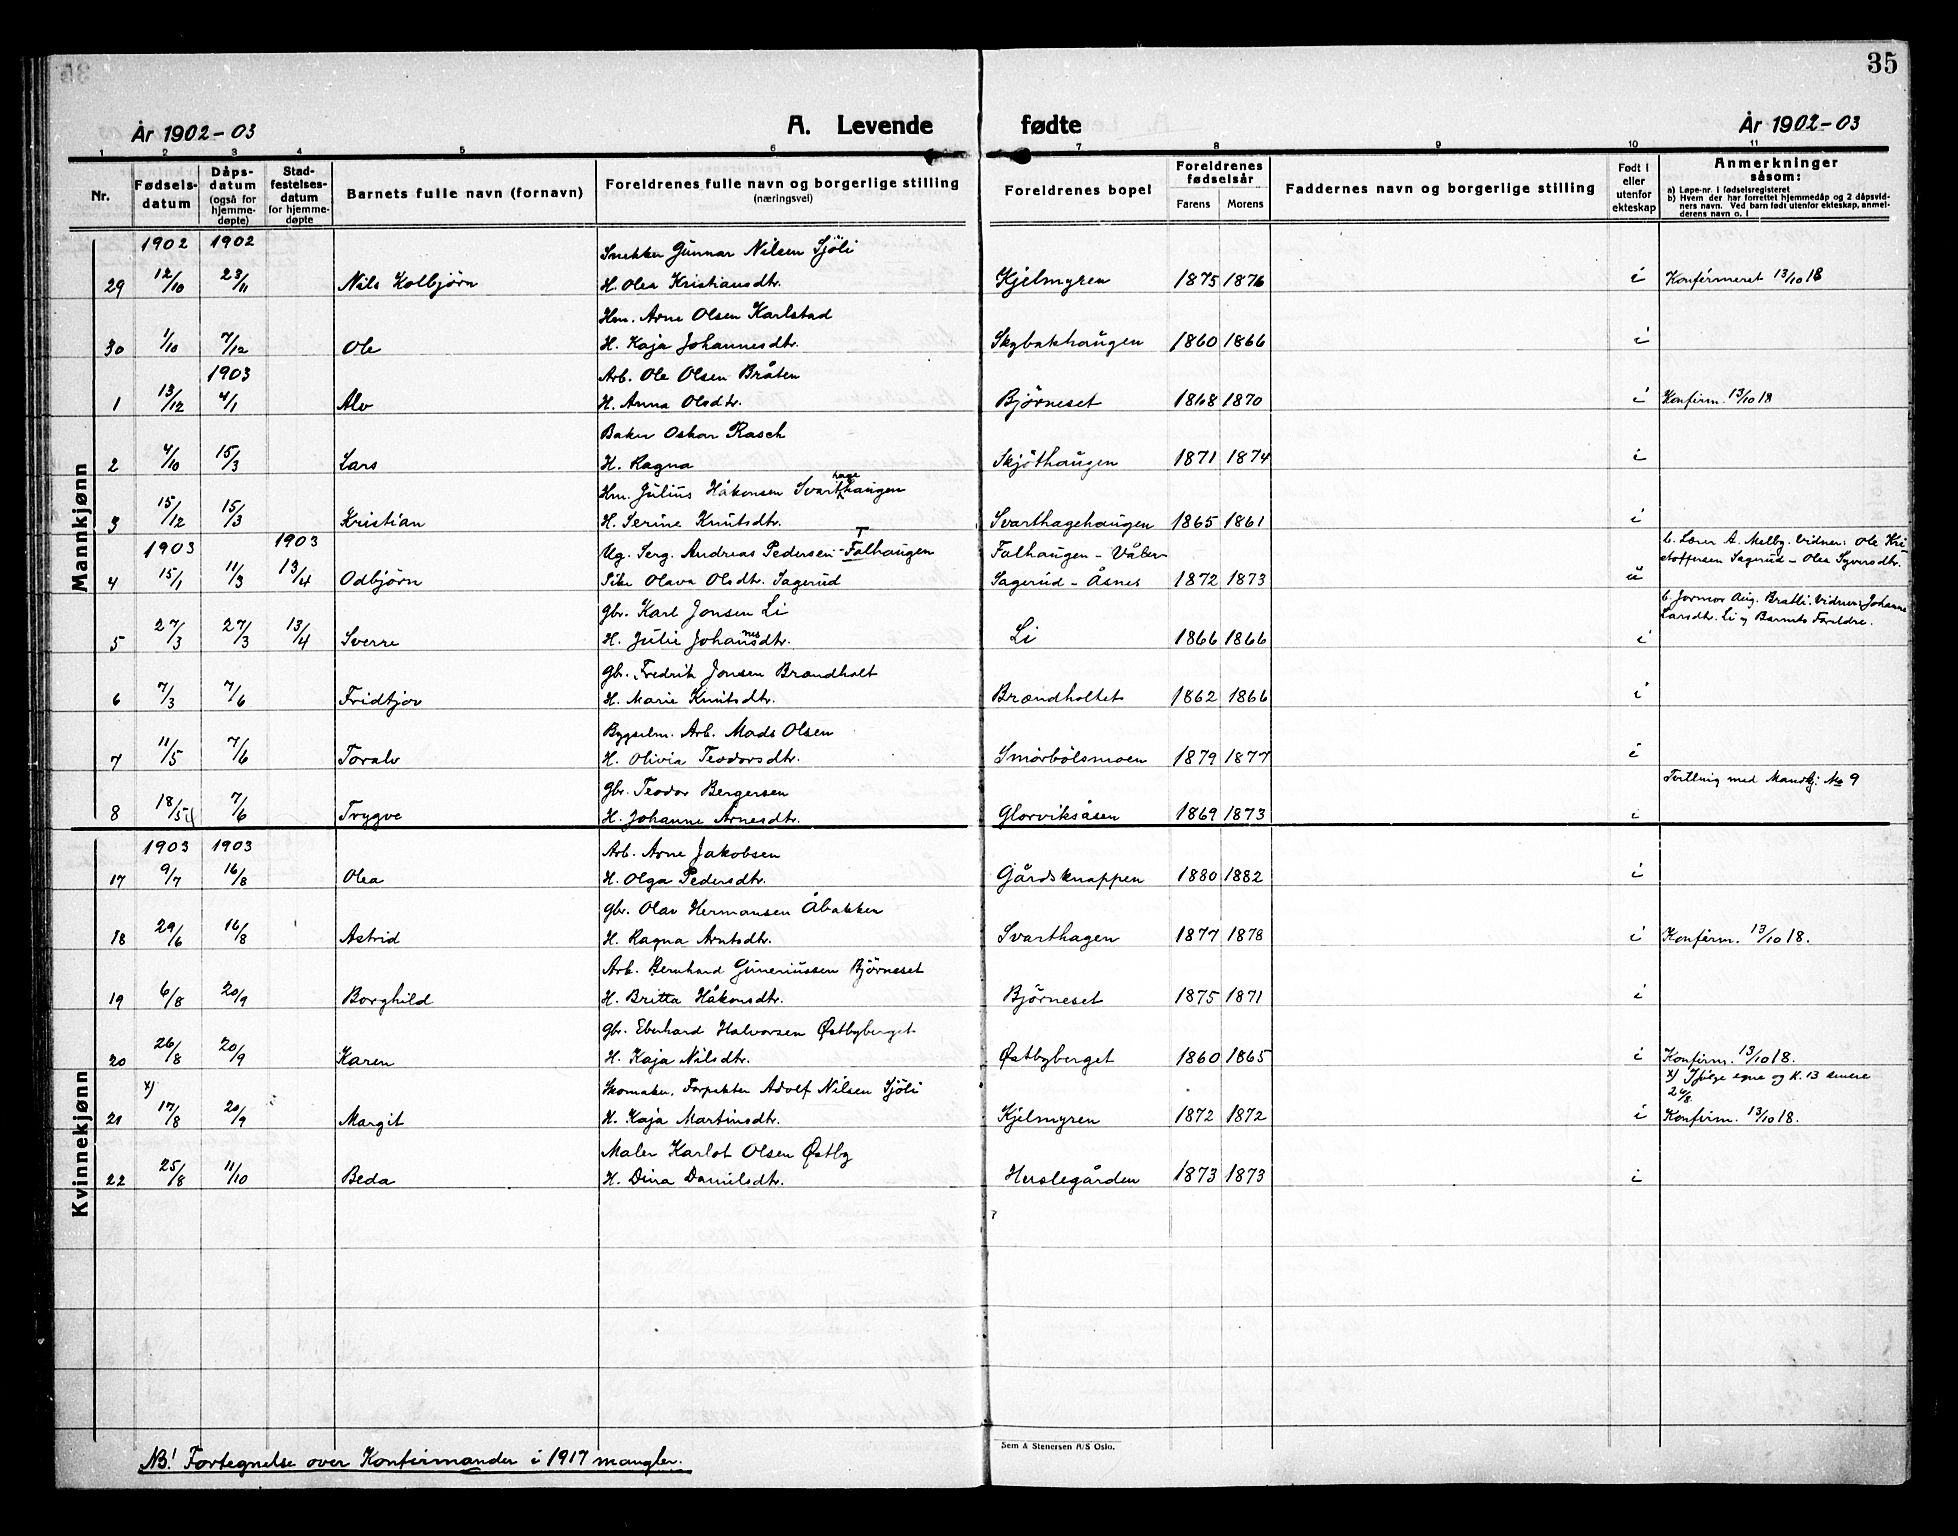 35
År 1902-03 A. Levende fødte År 1902-03
1 2 3 4 5 6 7 8 9 10 11
Nr. Fødsels-datum Dåps-datum (også for hjemme-døpte) Stad-festelses-datum for hjemme-døpte Barnets fulle navn (fornavn) Foreldrenes fulle navn og borgerlige stilling (næringsvei) Foreldrenes bopel Foreldrenes fødselsår Farens Morens Faddernes navn og borgerlige stilling Født i eller utenfor ekteskap Anmerkninger såsom:
a) Løpe-nr. i fødselsregisteret
b) Hvem der har forrettet hjemmedåp og 2 dåpsvidners navn. Ved barn født utenfor ekteskap, anmelderens navn o. l
Mannkjønn
1902 1902 Snekker Gunnar Nilsen Sjöli
29 12/10 23/11 Nils Kolbjørn H. Olea Kristiansdtr. Kjelmyren 1875 1876 i Konfirmeret 13/10 18
Hm. Arne Olsen Karlstad
30 1/10 7/12 Ole H. Kaja Johannesdtr. Skybakhaugen 1860 1866 i
1903 Arb. Ole Olsen Bråten
1 13/12 4/1 Alv H. Anna Olsdtr. Björneset 1868 1870 i Konfirm. 13/10 18
Baker Oskar Rasch
2 4/10 15/3 Lars H. Ragna Skjöthaugen 1871 1874 i
Hm. Julius Håkonsen Svarthagehaugen
3 15/12 15/3 Kristian H. Serine Knutsdtr. Svarthagehaugen 1865 1861 i
1903 1903 Ug. Serg. Andreas Pedersen - Falhaugen Falhaugen - Våler b. Lærer A. Melby. Vidner: Ole Kri
4 15/1 11/3 13/4 Odbjørn Pike Olava Olsdtr. Sagerud Sagerud - Åsnes 1872 1873 u stoffersen Sagerud - Olea Syversdtr.
gbr. Karl Jonsen Li b. Jormor Aug. Bratli. Vidner: Johanne
5 27/3 27/3 13/4 Sverre H. Julie Johannesdtr. Li 1866 1866 i Larsdtr. Li og Barnets Forældre.
gbr. Fredrik Jonsen Brændholt
6 7/3 7/6 Fridtjov H. Marie Knutsdtr. Brændholtet 1862 1866 i
Bygselm. Arb. Mads Olsen
7 11/5 7/6 Toralv H. Olivia Teodorsdtr. Smörbölsmoen 1879 1877 i
gbr. Teodor Bergersen Tvilling med Mandkj. No 9
8 18/5 7/6 Trygve H. Johanne Arnesdtr. Glorviksåsen 1869 1873 i
Kvinnekjønn
1903 1903 Arb. Arne Jakobsen
17 9/7 16/8 Olea H. Olga Pedersdtr. Gårdsknappen 1880 1882 i
gbr. Olav Hermansen Åbakken
18 29/6 16/8 Astrid H. Ragna Arntsdtr. Svarthagen 1877 1878 i Konfirm. 13/10 18.
Arb. Bernhard Guneriussen Björneset
19 6/8 20/9 Borghild H. Britta Håkonsdtr. Björneset 1875 1871 i
gbr. Eberhard Halvorsen Østbyberget
20 26/8 20/9 Karen H. Kaja Nilsdtr. Østbyberget 1860 1865 i Konfirm. 13/10 18.
x) Skomaker, Forpakter Adolf Nilsen Sjöli x) Ifølge egne og K. 13 senere 26/8.
21 17/8 20/9 Margit H. Kaja Martinsdtr. Kjelmyren 1872 1872 i Konfirm. 13/10 18.
Maler Karlot Olsen Østby
22 25/8 11/10 Beda H. Dina Danielsdtr. Herslegården 1873 1873 i
Sem & Stenersen A/S Oslo.
NB! Fortegnelse over Konfirmander i 1917 mangler.